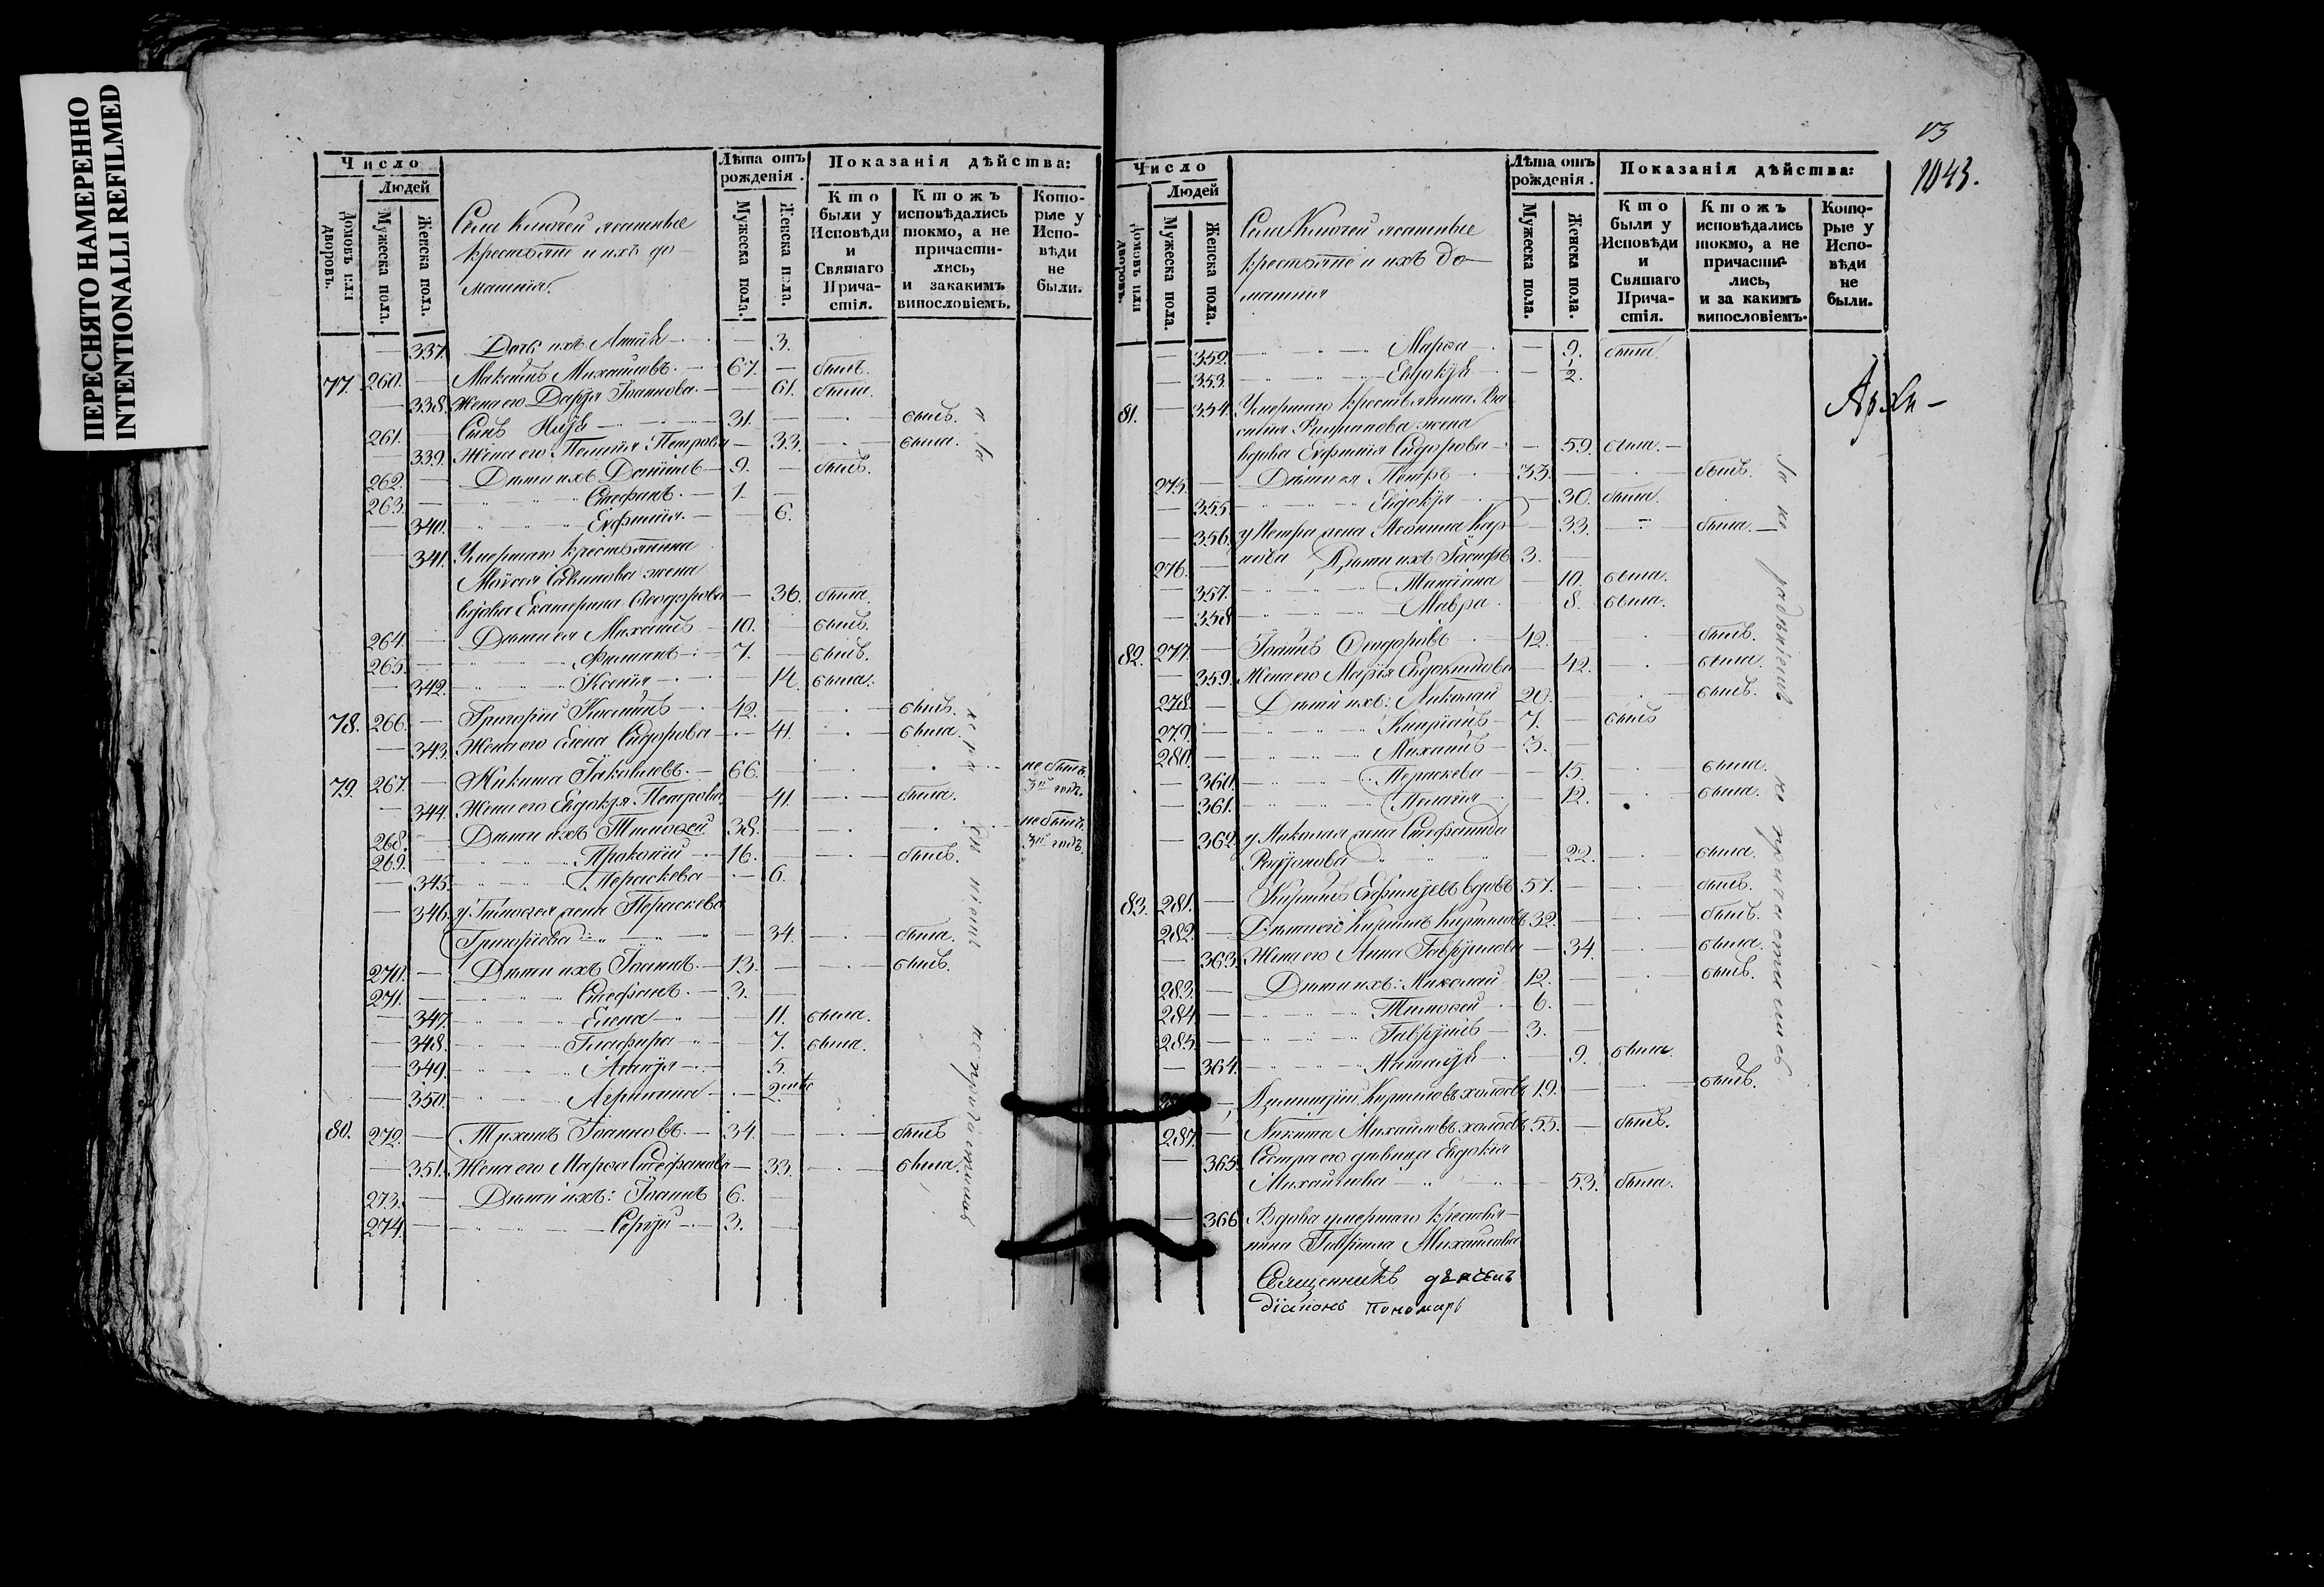 ПЕРЕСНЯТО НАМЕРЕННО
INTENTIONALLI REFILMED
Число
Людей
Домовъ или дворовъ.
Мужеска пола.
Женска пола.
Села Ключей ясашные
крестьяне и ихъ до
машнiя.
Лѣта отъ рожденiя.
Мужеска пола.
Женска пола.
Показанiя дѣйства:
Кто были у Исповѣди и Святаго Прича-стiя.
Ктожъ исповѣдались токмо, а не причасти-лись, и закакимъ винословiемъ.
Кото-рые у Испо-вѣди не были.
— 337. Дочь ихъ — 3.
77. 260. — Максимъ Михайловъ. — 67. — былъ.
— 338. Жена его Дарiя Iоаннова. — 61. была.
261. — Сынъ 31. — былъ.
— 339. Жена его Пелагiя Петрова — 33. — была.
262. — Дѣти ихъ Данiилъ — 9. — былъ.
263. — Стефанъ. — 1. —
— 340. Евфимiя. — 6.
— 341. Умершаго крестьянина
Моисея жена
вдова Екатерина Ѳеодорова — 36. была.
264. — Дѣти ея Михаилъ — 10. — былъ.
265. — Филиппъ — 7. — былъ.
— 342. Ксенiя — 14. была.
78. 266. — Григорiй — 42. — былъ.
— 343. Жена его Елена Сидорова — 41. — была.
79. 267. — Никита Iаковлевъ. — 66. — не былъ. 3й годъ.
— 344. Жена его Евдокiя Петрова — 41. — была.
268. — Дѣти ихъ Тимоѳей 38. — не былъ. 3й годъ.
269. — Прокопiй — 16. — былъ.
— 345. Пераскева — 6.
— 346. у Тимоѳея жена Пераскева
Григорiева — 34. — была.
270. — Дѣти ихъ Iоаннъ. — 13. — былъ.
271. — Стефанъ. — 3. —
— 347. Елена — 11. была.
— 348. Глафира — 7. была.
— 349. — 5.
— 350. Агрипина — 2.
80. 272. — Iоанновъ. — 34. — былъ
— 351. Жена его Марѳа Стефанова — 33. — была.
273. — Дѣти ихъ: Iоаннъ 6. —
274. — Сергiй — 3. —
не причастились
1043.
Число
Людей
Домовъ или дворовъ.
Мужеска пола.
Женска пола.
Села Ключей ясашные
крестьяне и ихъ до-
машнiя
Лѣта отъ рожденiя.
Мужеска пола.
Женска пола.
Показанiя дѣйства:
Кто были у Исповѣди и Святаго Прича-стiя.
Ктожъ исповѣдались токмо, а не причасти-лись, и за какимъ винословiемъ.
Кото-рые у Испо-вѣди не были.
— 352. Марѳа — 9. была.
— 353. Евдокiя — 1/2.
81. — 354. Умершаго крестьянина Ва
силiя жена
вдова Евфимiя Сидорова — 59. была. —
275. — Дѣти ея Петръ 33. — былъ.
— 355. Евдокiя — 30. была.
— 356. у Петра жена Кар 33. — была. —
пова Дѣти ихъ Iосифъ 3. —
276. —
— 357. Татiана — 10. была.
— 358. Мавра. 8. была.
82. 277. — Iоаннъ Ѳеодоровъ 42. — былъ.
— 359. Жена его Марiя Евдокимова — 42. — была.
278. — Дѣти ихъ: Николай 20. — былъ.
279. — Кипрiанъ — 7. — былъ
280. — Михаилъ — 3. —
— 360. Пераскева — 15. — была.
— 361. Пелагiя — 12. — была.
— 362. у Николая жена Стефанида
Родiонова — 22. — была.
83. 281. — Кирилъ Евфимiевъ вдовъ 57. — былъ.
282. — Дѣти его Кирилъ Кириловъ 32. — былъ.
— 363. Жена его Анна Гаврiилова — 34. — была.
283. — Дѣти ихъ: Николай 12. — былъ.
284. — Тимоѳей — 6. —
285. — Гаврiилъ — 3. —
— 364. Наталiя — 9. была.
— Димитрiй Кириловъ холостъ 19. — былъ.
287. — Никита Михайловъ холостъ 55. — былъ.
— 365. Сестра его дѣвица Евдокiя
Михайлова — 53. была.
— 366. Вдова умершаго крестья-
нина Гаврiила Михайлова
Священникъ
дiаконъ пономарь
не причастились